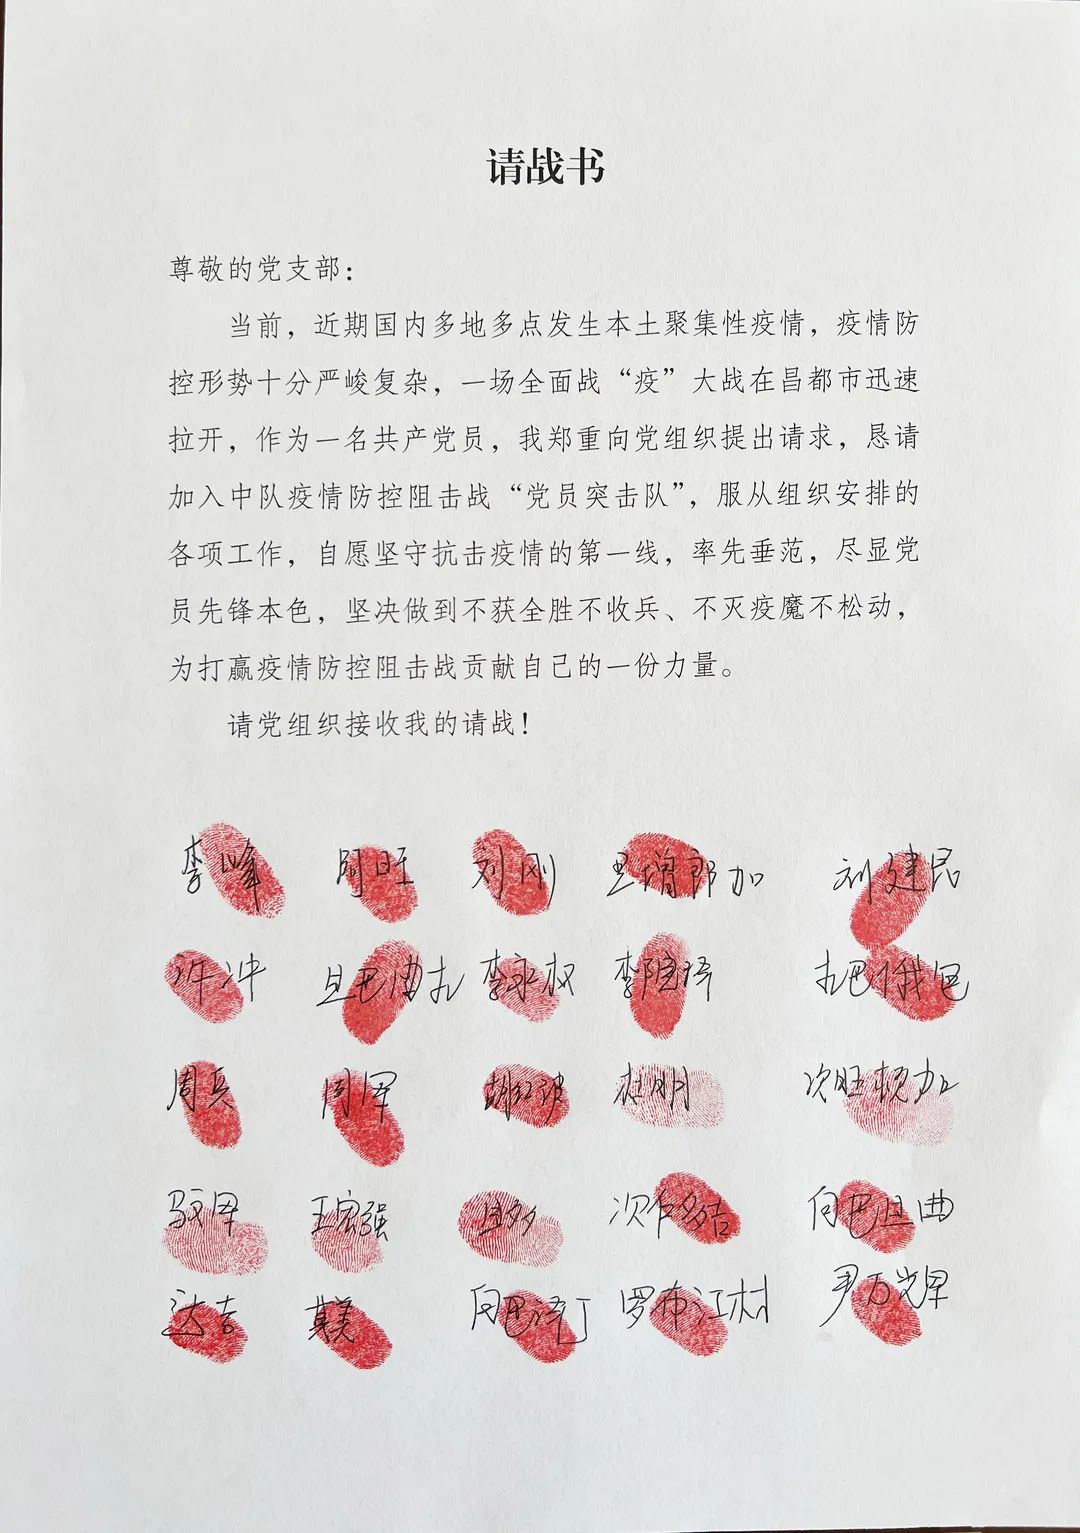 请战书
尊敬的党支部：
当前，近期国内多地多点发生本土聚集性疫情，疫情防
控形势十分严峻复杂，一场全面战“疫”大战在昌都市迅速
拉开，作为一名共产党员，我郑重向党组织提出请求，恳请
加入中队疫情防控阻击战“党员突击队”，服从组织安排的
各项工作，自愿坚守抗击疫情的第一线，率先垂范，尽显党
员先锋本色，坚决做到不获全胜不收兵、不灭疫魔不松动，
为打赢疫情防控阻击战贡献自己的一份力量。
请党组织接收我的请战！
李峰 阿旺 刘刚 旦增郎加 刘建民
许冲 旦巴曲扎 李永权 扎巴俄色
周兵 周泽 杜明 次旺
王宏强 旦多 次乍多吉 向巴旦曲
达吉 向巴泽丁 罗布江村